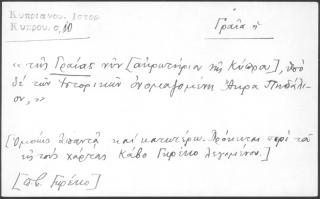 Κυπριανού. Ιστορ.
Κύπρου. σ, 10
Γραῖα ἡ
« τῆς Γραίας νῦν [ἀκρωτήριον τῆς Κύπρου], ὑπὸ
δὲ τῶν Ἱστορικῶν ὀνομαζομένη Ἄκρα Πηδάλι-
ον, »
[Ὁμοίως καὶ κατωτέρω. Πρόκειται περὶ τοῦ
εἰς τοὺς χάρτας Κάβο Γκρέκο λεγομένου.]
[Γκρέκο]